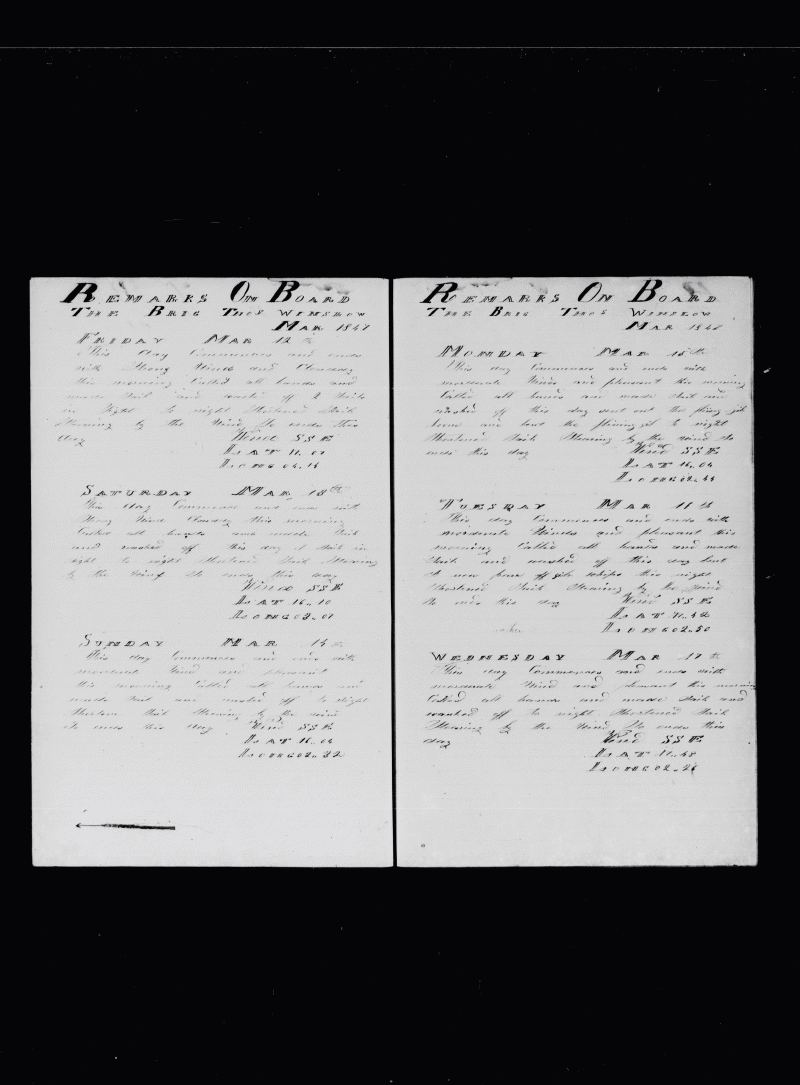 REMARKS ON BOARD
THE BRIG THOS WINSLOW
MAR 1847
FRIDAY MAR 12 th
This day Commences and ends
with Strong Winds and Cloudy
this morning Called all hands and
made Sail and washt off 2 Sails
in Sight to night Shortened Sail
Stearing by the Wind So ends this
day Wind SSE
LAT
LONG 04.14
SATURDAY MAR 13th
This day Commences and ends with
Strong Wind Cloudy this morning
Called all hands and made Sail
and washed off this day 1 Sail in
sight to night Shortened Sail Stearing
by the Wind So ends this day
Wind SSE
LAT 16.10
LONG 03.01
SUNDAY MAR 14 th
This day Commences and ends with
moderate Wind and pleasant
this morning Called all hands and
made Sail and washed off to night
Shorten Sail Stearing by the wind
So ends this day Wind SSE
LAT 16.04
LONG 02.32
REMARKS ON BOARD
THE BRIG THOS WINSLOW
MAR 184
MONDAY MAR 15th
This day Commences and ends with
moderate Winds and pleasant this morning
Called all hands and made Sail and
washed off this day sent out the flying jib
boom and bent the flying jib to night
Shortened Sail Stearing by the wind So
ends this day Wind SSE
LAT 16.04
LONG 02.44
TUESDAY MAR th
This day Commences and ends with
moderate Winds and pleasant this
morning Called all hands and made
Sail and washed off this day bent
a new fore off this night
Shortened Sail Stearing by the Wind
So ends this day Wind SSE
LAT 11.42
LONG 02.30
WEDNESDAY MAR 17 th
This day Commences and ends with
moderate Wind and pleasant this morning
Called all hands and made Sail and
washed off to night Shortened Sail
Stearing by the Wind So ends this
day Wind SSE
LAT 11.48
LONG 02.26